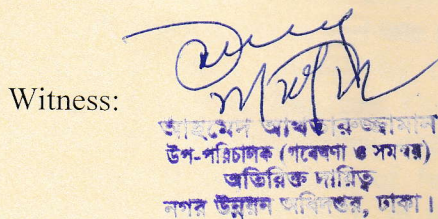 Witness:
আহমেদ আখতারুজ্জামান
উপ-পরিচালক (গবেষণা ও সমন্বয়)
অতিরিক্ত দায়িত্ব
নগর উন্নয়ন অধিদপ্তর, ঢাকা।